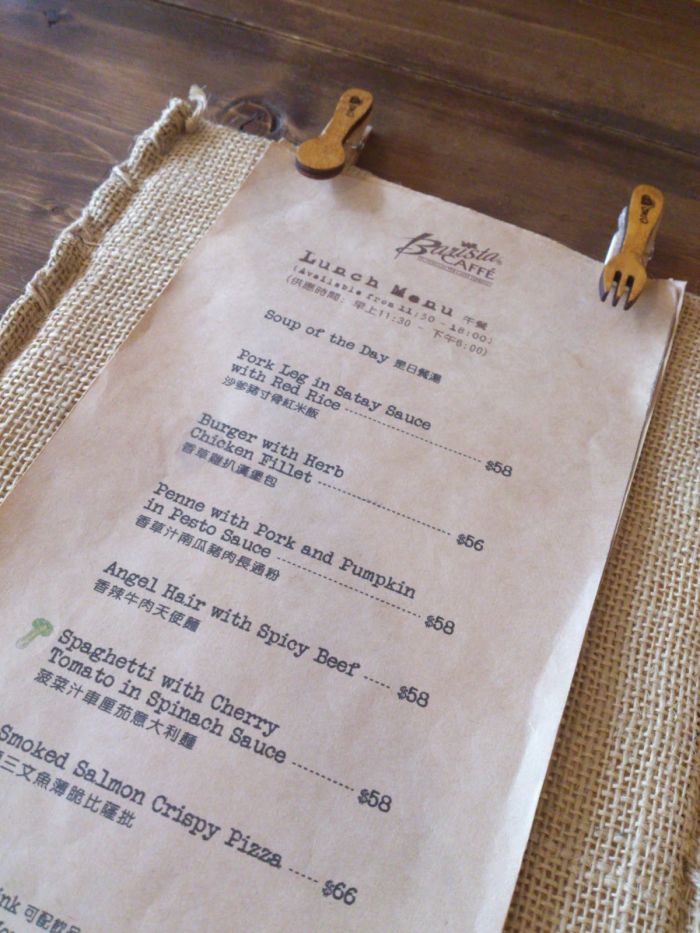 Barista
CAFFÉ
Lunch Menu 午餐
(Available from 11:30 - 18:00)
(供應時間: 早上11:30 - 下午6:00)
Soup of the Day 是日餐湯
Pork Leg in Satay Sauce
with Red Rice ---------- $58
沙爹豬寸骨紅米飯
Burger with Herb
Chicken Fillet ---------- $56
香草雞扒漢堡包
Penne with Pork and Pumpkin
in Pesto Sauce ---------- $58
香草汁南瓜豬肉長通粉
Angel Hair with Spicy Beef ---- $58
香辣牛肉天使麵
Spaghetti with Cherry
Tomato in Spinach Sauce ---------- $58
菠菜汁車厘茄意大利麵
Smoked Salmon Crispy Pizza ---- $66
三文魚薄脆比薩批
可配飲品